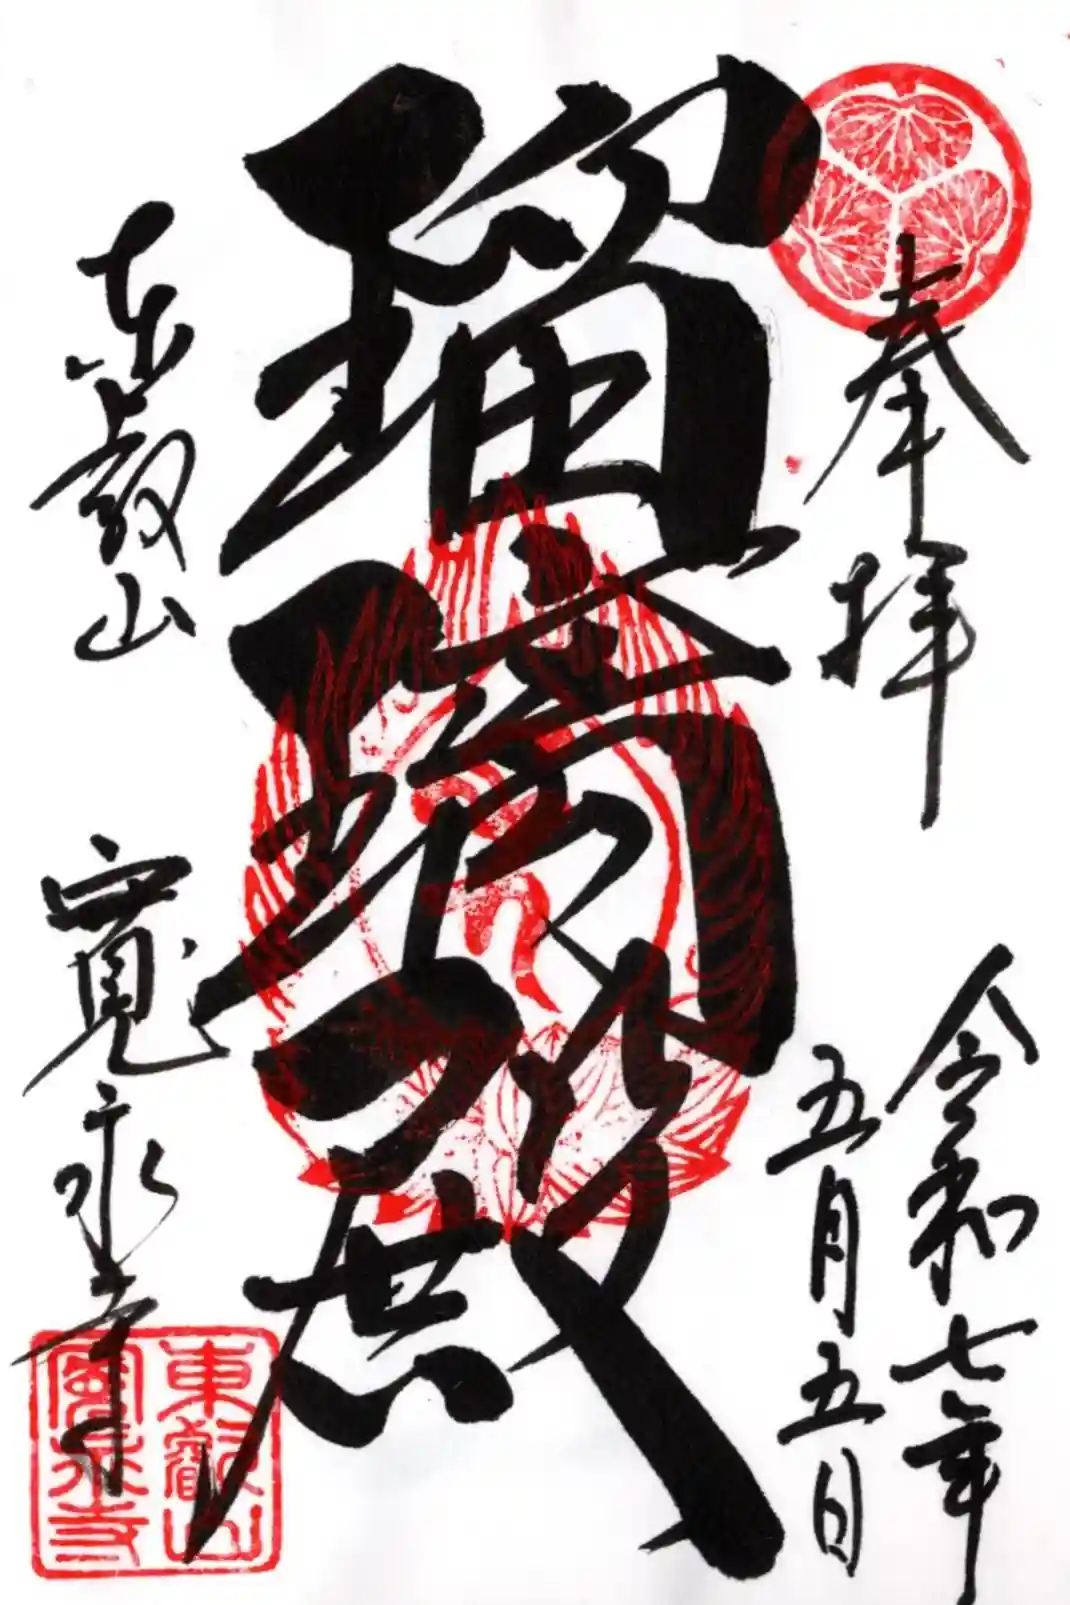 奉拝
令和七年
五月五日
瑠璃殿
東叡山
寛永寺
東叡山
寛永寺